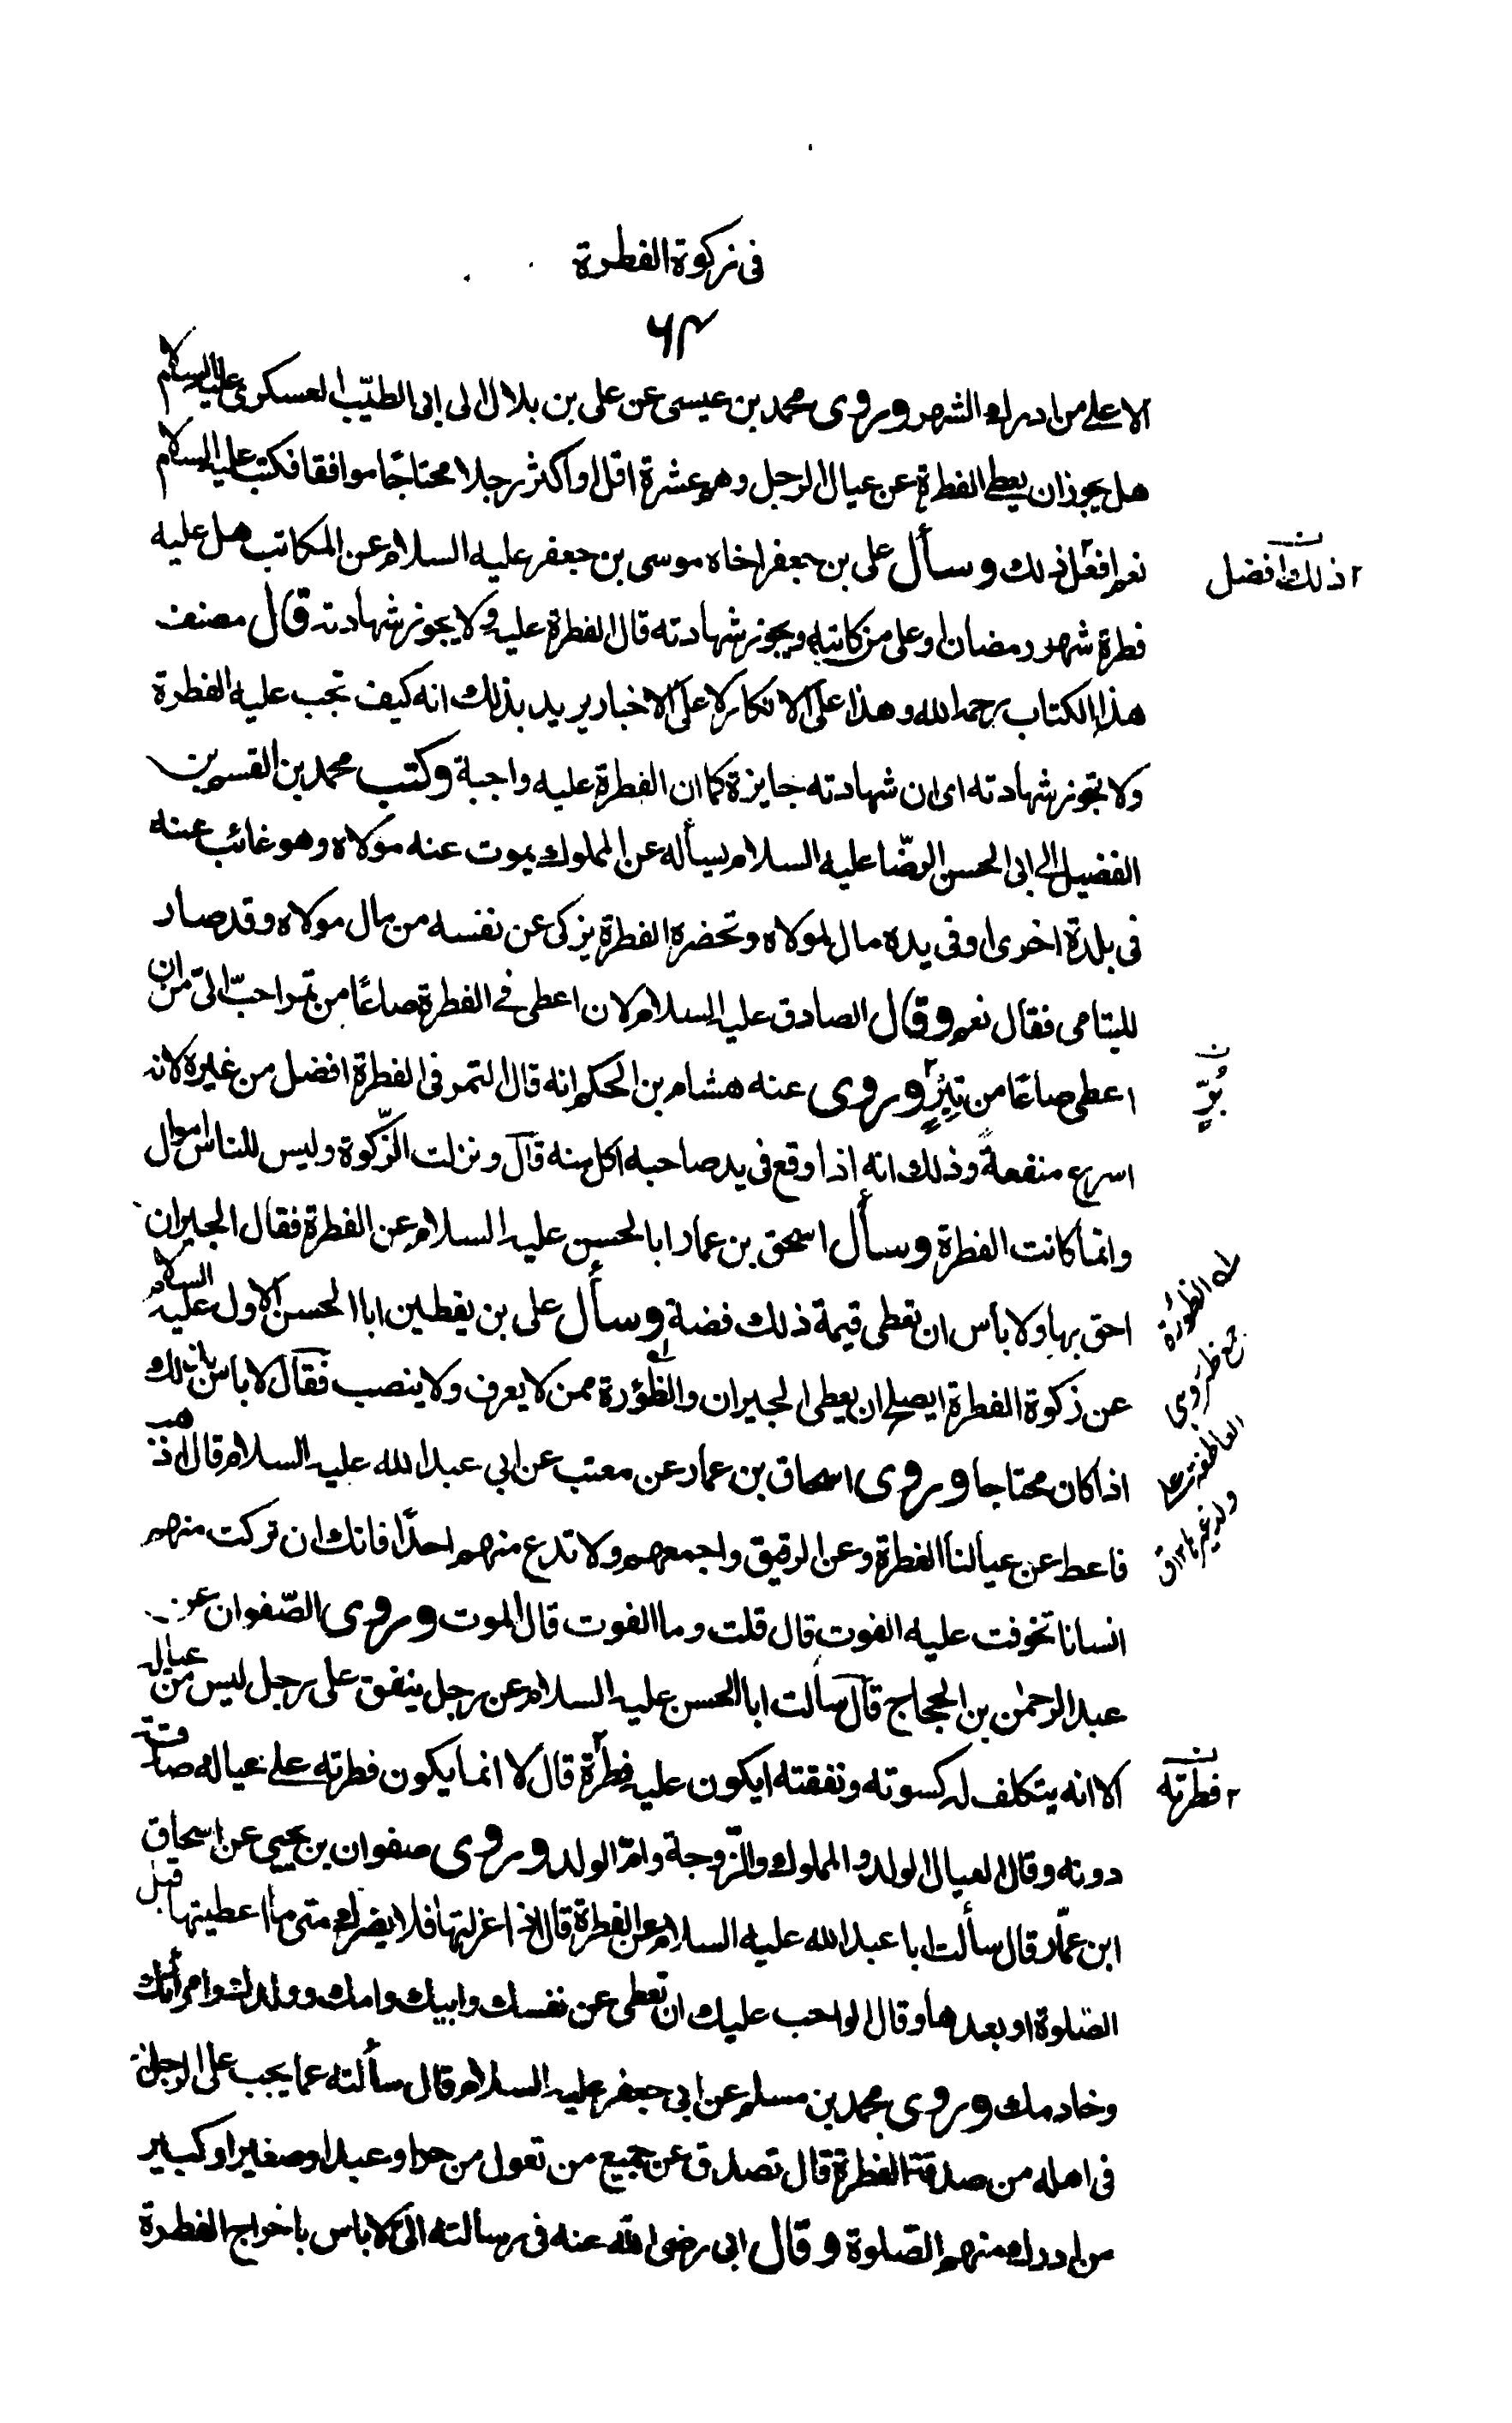 فى زكوة الفطرة
٦٣
الا على من ادرك الشهر وروى محمد بن عيسى عن على بن بلال الى ابى الطيّب العسكرى عليه السلام
هل يجوز ان يعطى الفطرة عن عيال الرجل وهم عشرة اقل او اكثر رجلا محتاجًا موافقا فكتب عليه السلام
نعم افعل ذلك وسأل على بن جعفر اخاه موسى بن جعفر عليه السلام عن المكاتب هل عليه
ذلك افضل
فطرة شهر رمضان او على من كاتبه ويجوز شهادته قال الفطرة عليه ولا يجوز شهادته قال مصنف
هذا الكتاب رحمه الله وهذا على الانكار لا على الاخبار يريد بذلك انه كيف تجب عليه الفطرة
ولا تجوز شهادته اى ان شهادته جايزة كما ان الفطرة عليه واجبة وكتب محمد بن القسم بن
الفضيل الى ابى الحسن الرضّا عليه السلام يسأله عن المملوك يموت عنه مولاه وهو غائب عنه
فى بلدة اخرى وفى يده مال لمولاه وتحضره الفطرة يزكى عن نفسه من مال مولاه وقد صار
لليتامى فقال نعم وقال الصادق عليه السلام لان اعطى فى الفطرة صاعًا من تمر احبّ الىّ من ان
اعطى صاعًا من تبرٍ وروى عنه هشام بن الحكم انه قال التمر فى الفطرة افضل من غيره لانه
بُرٍّ
اسرع منفعةً وذلك انه اذا وقع فى يد صاحبه اكل منه قال ونزلت الزّكوة وليس للناس اموال
وانما كانت الفطرة وسأل اسحق بن عمار ابا الحسن عليه السلام عن الفطرة فقال الجيران
احق بها ولا بأس ان تعطى قيمة ذلك فضة وسأل على بن يقطين ابا الحسن الاول عليه السلام
عن زكوة الفطرة ايصلح ان يعطى الجيران والظؤرة ممن لا يعرف ولا ينصب فقال لا باس بذلك
له الظؤرة
جمع ظئر وهى
العاطفة على
ولد غيرها ١٢ ق
اذا كان محتاجا وروى اسحاق بن عمار عن معتب عن ابى عبد الله عليه السلام قال اذهب
فاعط عن عيالنا الفطرة وعن الرقيق واجمعهم ولا تدع منهم احدًا فانك ان تركت منهم
انسانا تخوفت عليه الفوت قال قلت وما الفوت قال الموت وروى الصّفوان عن
عبد الرحمٰن بن الحجاج قال سألت ابا الحسن عليه السلام عن رجل ينفق على رجل ليس من عياله
الا انه يتكلف له كسوته ونفقته ايكون عليه فطرة قال لا انما يكون فطرته على عياله صدقة
فطرته
دونه وقال العيال الولد والمملوك والزّوجة وامّ الولد وروى صفوان بن يحيى عن اسحاق
ابن عمّار قال سألت ابا عبد الله عليه السلام عن الفطرة قال اذا عزلتها فلا يضرك متى ما اعطيتها قبل
الصّلوة او بعدها وقال الواجب عليك ان تعطى عن نفسك وابيك وامك وولدك وامرأتك
وخادمك وروى محمد بن مسلم عن ابى جعفر عليه السلام قال سألته عما يجب على الرجل
فى اهله من صدقة الفطرة قال تصدق عن جميع من تعول من حر او عبد او صغير او كبير
من ادرك منهم الصّلوة وقال ابى رضى الله عنه فى رسالته الىّ لا باس باخراج الفطرة